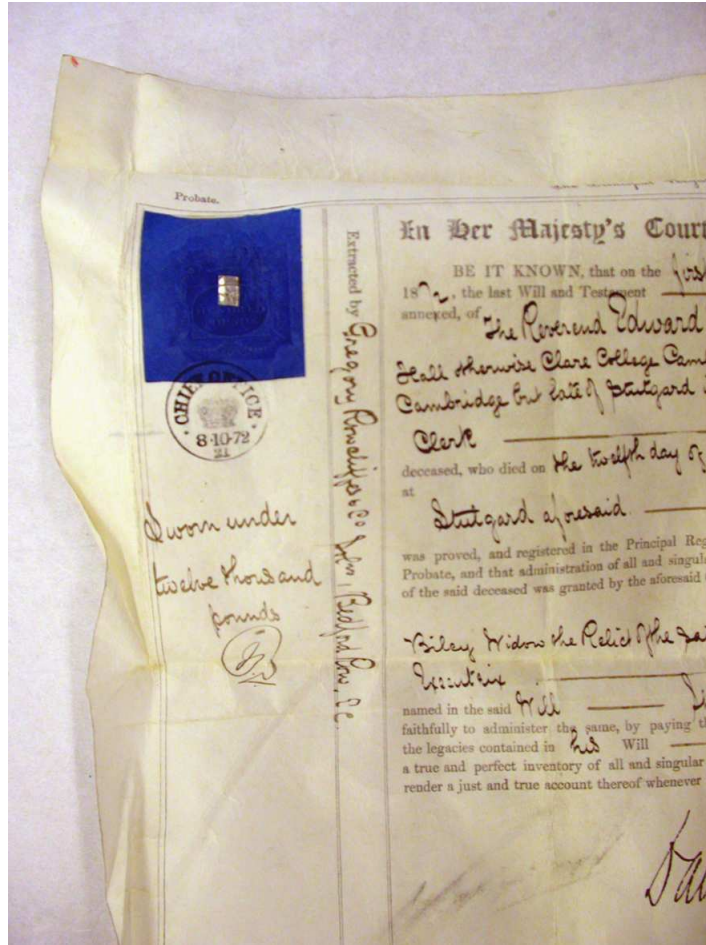 Probate.
CHIEF OFFICE
8·10·72
21
Sworn under
twelve thousand
pounds
Extracted by Gregory Rowcliffes & Co John 1 Bedford Row, W.C.
In Her Majesty's Court
BE IT KNOWN, that on the first
1872, the last Will and Testament
annexed, of The Reverend Edward
Hall otherwise Clare College Cam
Cambridge but late of Stutgard
Clerk
deceased, who died on the twelfth day of
at
Stutgard aforesaid.
was proved, and registered in the Principal Reg
Probate, and that administration of all and singul
of the said deceased was granted by the aforesaid
Biley Widow the Relict of the sai
Executrix
named in the said Will
faithfully to administer the same, by paying th
the legacies contained in his Will
a true and perfect inventory of all and singular
render a just and true account thereof whenever